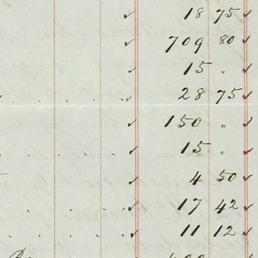 ✓ 18 75 ✓
✓ 709 80 ✓
✓ 15 " ✓
. . . ✓ 28 75 ✓
✓ 150 " ✓
. . . ✓ 15 " ✓
✓ 4 50 ✓
. . . ✓ 17 42 ✓
. . . ✓ 11 12 ✓